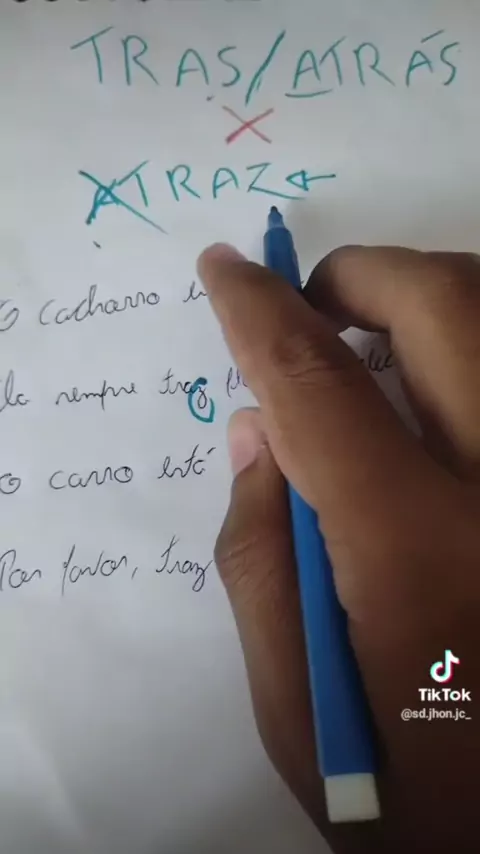 TRAS/ATRÁS
X
ATRAZ
O cachorro
la sempre traz
O carro está
Por favor, traz
TikTok
@sd.jhon.jc_